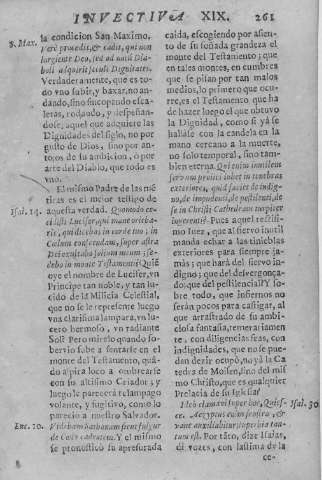 INVECTIVA XIX. 261
S. Max. la condicion San Maximo,
Verè procedit, & cadit, qui non
largiente Deo, sed ad nutū Dia-
boli adquirit sæculi Dignitates.
Verdaderamente, que es to-
do vno subir, y baxar, no an-
dando, sino buscando esca-
leras, rodando, y despeñan-
dose, aquel que adquiere las
Dignidades del siglo, no por
gusto de Dios, sino por an-
tojos de su ambicion, ò por
arte del Diablo, que todo es
vno.
El mismo Padre de las mē-
ticas es el mejor testigo de
Isai. 14. aquesta verdad. Quomodo ce-
cidisti Lucifer, qui mane orieba-
ris, qui dicebas in corde tuo; in
Cœlum conscendam, super astra
Dei exaltabo solium meum; se-
debo in monte Testamenti? Quiē
oye el nombre de Lucifer, vn
Principe tan noble, y tan lu-
cido de la Milicia Celestial,
que no se le represente luego
vna clarissima lampara, vn lu-
cero hermoso, vn radiante
Sol? Pero mirelo quando so-
bervio sube à sentarse en el
monte del Testamento, quā-
do aspira loco à ombrearse
con su altissimo Criador; y
luego le parecerà relampago
volante, y fugitivo, como lo
pareciò a nuestro Salvador.
Luc. 10. Videbam Sathanam sicut fulgur
de Cœlo cadentem. Y el mismo
se pronosticò su apresurada
caida, escogiendo por asien-
to de su soñada grandeza el
monte del Testamento; que
en tales montes, en cumbres
que se pisan por tan malos
medios, lo primero que ocu-
rre, es el Testamento que ha
de hazer luego el que obtuvo
la Dignidad, como si yà se
hallasse con la candela en la
mano cercano a la muerte,
no solo temporal, sino tam-
bien eterna. Qui enim inutilem
servum proijci iubet in tenebras
exteriores, quid faciet de indig-
no, de impudenti, de pestilenti, &
se in Christi Cathedram turpiter
ingerenti? Pues aquel rectissi-
mo Iuez, que al siervo inutil
manda echar a las tinieblas
exteriores para siempre ja-
màs; que harà del siervo in-
digno; que del desvergonça-
do; que del pestilencial? Y so-
bre todo, que infiernos no
seràn pocos para castigar, al
que arrastrado de su ambi-
ciosa fantasia, temerariamen-
te, con diligencias feas, con
indignidades, que no se pue-
den dezir, ocupò, no yà la Ca-
tedra de Moisen, sino del mis-
mo Christo, que es qualquier
Prelacia de su Iglesia?
Heù clamavi super hoc, Quies- Isai. 30.
ce. Aegyptus enim frustra, & 
vanè auxiliabitur, superbia tan-
tum est. Por tāto, dize Isaias,
dì vozes, con lastima de la
ce-